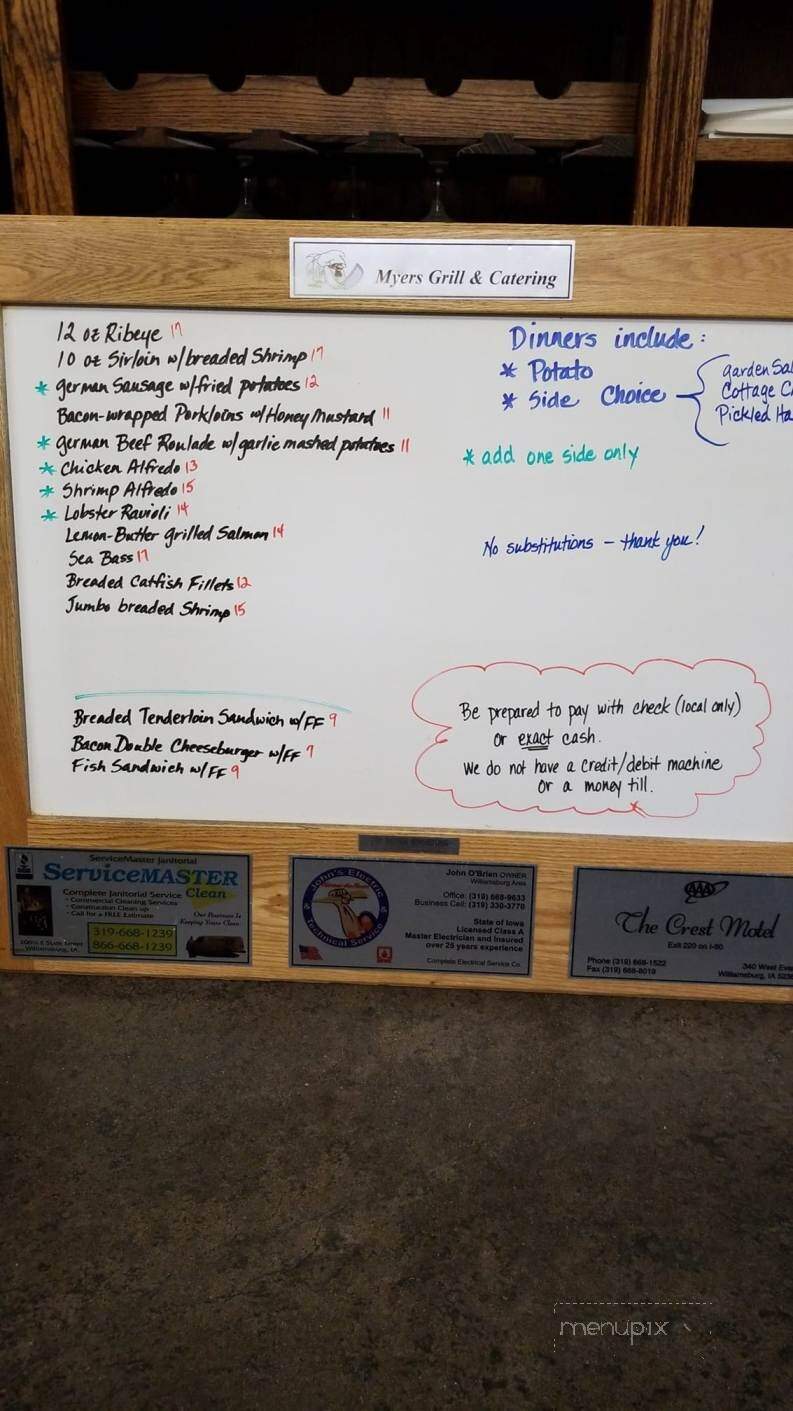 Myers Grill & Catering
12 oz Ribeye 17
10 oz Sirloin w/breaded Shrimp 17
* german Sausage w/fried potatoes 12
Bacon-wrapped Porkloins w/Honey Mustard 11
* german Beef Roulade w/garlic mashed potatoes 11
* Chicken Alfredo 13
* Shrimp Alfredo 15
* Lobster Ravioli 14
Lemon-Butter grilled Salmon 14
Sea Bass 17
Breaded Catfish Fillets 12
Jumbo breaded Shrimp 15
Breaded Tenderloin Sandwich w/FF 9
Bacon Double Cheeseburger w/FF 7
Fish Sandwich w/FF 9
Dinners include:
* Potato
* Side Choice
garden Sal
Cottage C
Pickled Ha
* add one side only
No substitutions - thank you!
Be prepared to pay with check (local only)
or exact cash.
We do not have a credit/debit machine
or a money till.
ServiceMaster Janitorial
ServiceMASTER
Clean
Complete Janitorial Service
• Commercial Cleaning Services
• Construction Clean up
• Call for a FREE Estimate
Our Business Is
Keeping Yours Clean
319-668-1239
866-668-1239
Williamsburg, IA
John's Electric
Technical Service
John O'Brien OWNER
Williamsburg Area
Office: (319) 668-9633
Business Cell: (319) 330-3770
State of Iowa
Licensed Class A
Master Electrician and Insured
over 25 years experience
Complete Electrical Service Co.
AAA
The Crest Motel
Exit 220 on I-80
Phone (319) 668-1522
Fax (319) 668-8019
340 West Eva
Williamsburg, IA 523
menupix